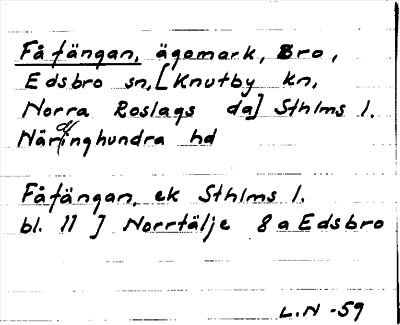 Fåfängan, ägomark, Bro,
Edsbro sn, [Knutby kn,
Norra Roslags da] Sthlms l.
Närdinghundra hd
Fåfängan, ek Sthlms l.
bl. 11 ] Norrtälje 8a Edsbro
L.N -59